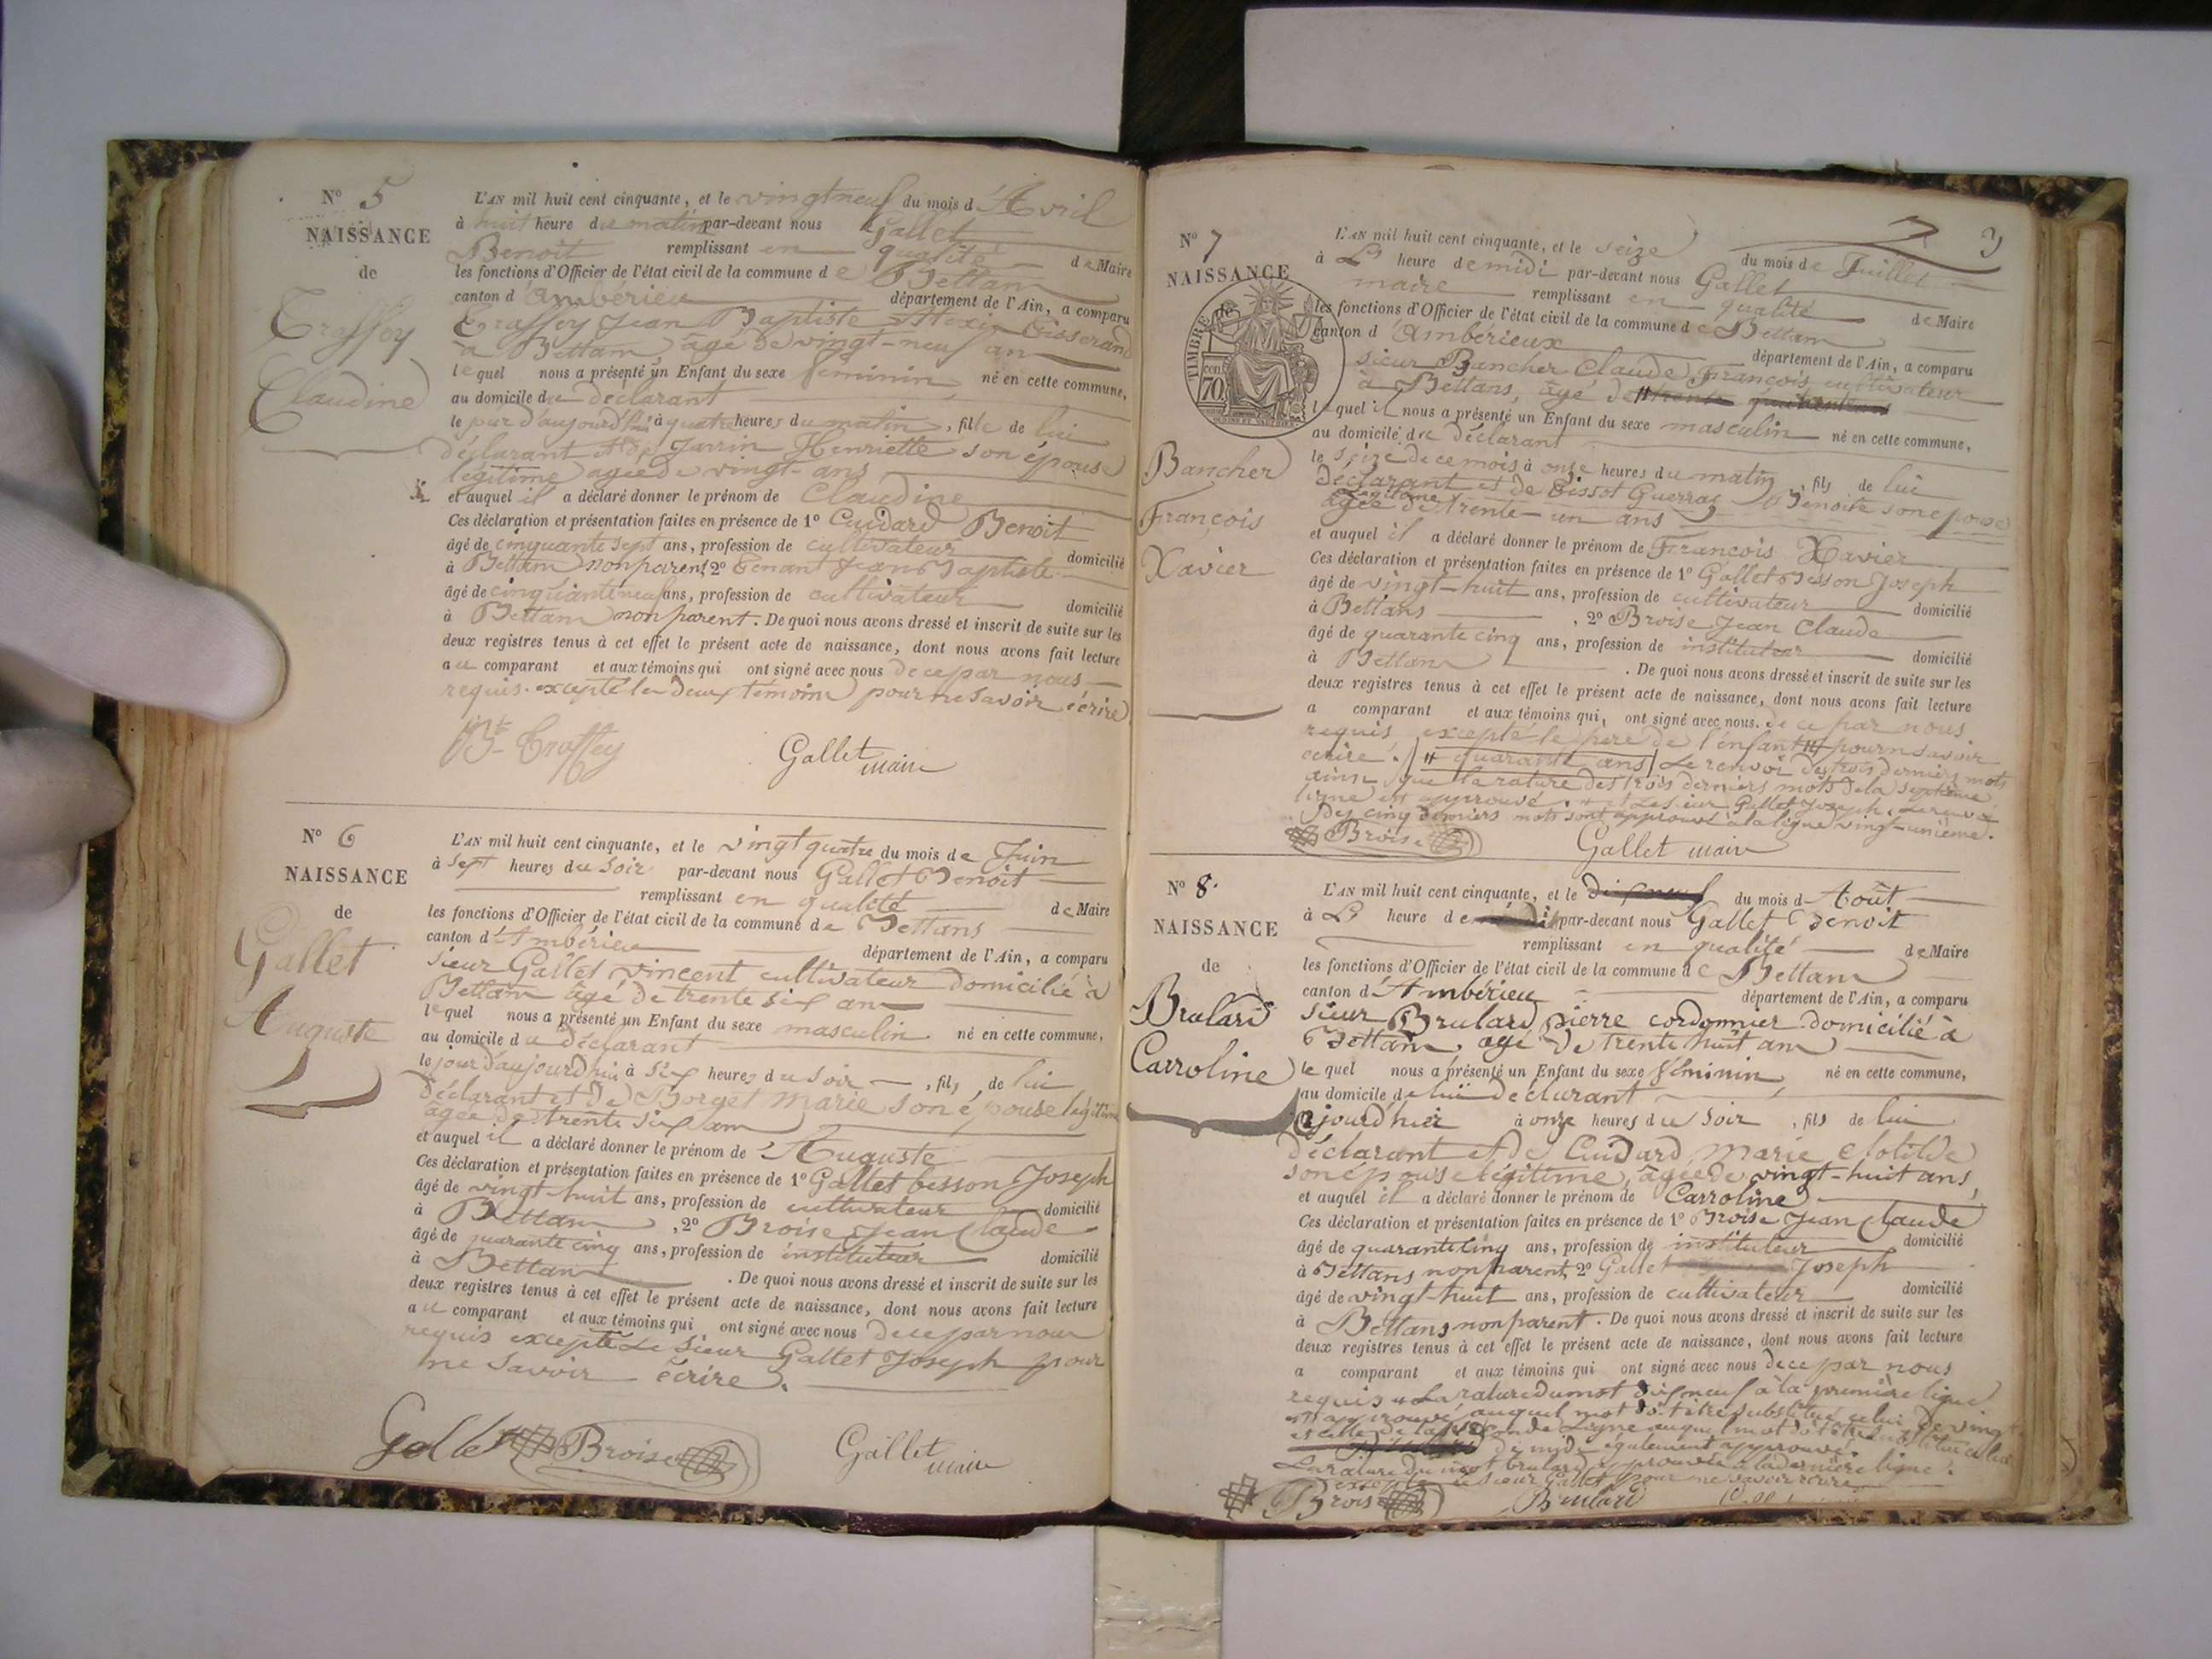 N° 5
NAISSANCE
de
Traffey
Claudine
L'AN mil huit cent cinquante, et le vingt neuf du mois d'Avril
à huit heure du matin par-devant nous Gallet
Benoit remplissant en qualité de Maire
les fonctions d'Officier de l'état civil de la commune de Bettans
canton d'Ambérieu département de l'Ain, a comparu
Traffey Jean Baptiste Tisserand
à Bettans, âgé de vingt-neuf ans
lequel nous a présenté un Enfant du sexe féminin né en cette commune,
au domicile du déclarant
le jour d'aujourd'hui à quatre heures du matin, fille de lui
déclarant et de Jarrin Henriette son épouse
légitime agée de vingt-ans
et auquel il a déclaré donner le prénom de Claudine
Ces déclaration et présentation faites en présence de 1° Cuidard Benoit
âgé de cinquante sept ans, profession de cultivateur domicilié
à Bettans non parent, 2° Tenant Jean Baptiste
âgé de cinquante neuf ans, profession de cultivateur domicilié
à Bettans non parent. De quoi nous avons dressé et inscrit de suite sur les
deux registres tenus à cet effet le présent acte de naissance, dont nous avons fait lecture
au comparant et aux témoins qui ont signé avec nous de ce par nous
requis. excepté les deux témoins pour ne savoir écrire
Bte Traffey Gallet maire
N° 6
NAISSANCE
de
Gallet
Auguste
L'AN mil huit cent cinquante, et le vingt quatre du mois de Juin
à sept heures du soir par-devant nous Gallet Benoit
remplissant en qualité de Maire
les fonctions d'Officier de l'état civil de la commune de Bettans
canton d'Ambérieu département de l'Ain, a comparu
sieur Gallet vincent cultivateur domicilié à
Bettans âgé de trente six ans
lequel nous a présenté un Enfant du sexe masculin né en cette commune,
au domicile du déclarant
le jour d'aujourd'hui à six heures du soir, fils de lui
déclarant et de Borget marie son épouse légitime
agée de trente six ans
et auquel il a déclaré donner le prénom de Auguste
Ces déclaration et présentation faites en présence de 1° Gallet besson Joseph
âgé de vingt-huit ans, profession de cultivateur domicilié
à Bettans, 2° Broise Jean Claude
âgé de quarante cinq ans, profession de instituteur domicilié
à Bettans. De quoi nous avons dressé et inscrit de suite sur les
deux registres tenus à cet effet le présent acte de naissance, dont nous avons fait lecture
au comparant et aux témoins qui ont signé avec nous de ce par nous
requis excepté Le Sieur Gallet Joseph pour
ne savoir écrire.
Gallet Broise Gallet maire
3
N° 7
NAISSANCE
TIMBRE
70
Bancher
François
Xavier
L'AN mil huit cent cinquante, et le seize du mois de Juillet
à heure de midi par-devant nous Gallet
maire remplissant en qualité de Maire
les fonctions d'Officier de l'état civil de la commune de Bettans
canton d'Ambérieux département de l'Ain, a comparu
sieur Bancher Claude François cultivateur
à Bettans, âgé de
lequel il nous a présenté un Enfant du sexe masculin né en cette commune,
au domicile du déclarant
le seize de ce mois à onze heures du matin, fils de lui
déclarant et de Tissot Guerraz Benoite son épouse
légitime
agée de trente-un ans
et auquel il a déclaré donner le prénom de François Xavier
Ces déclaration et présentation faites en présence de 1° Gallet Besson Joseph
âgé de vingt-huit ans, profession de cultivateur domicilié
à Bettans, 2° Broise Jean Claude
âgé de quarante cinq ans, profession de instituteur domicilié
à Bettans. De quoi nous avons dressé et inscrit de suite sur les
deux registres tenus à cet effet le présent acte de naissance, dont nous avons fait lecture
a comparant et aux témoins qui, ont signé avec nous. de ce par nous
requis excepté le père de l'enfant pour ne savoir
écrire. quarante ans Le renvoi des trois derniers mots
ainsi que la rature des trois derniers mots de la septième
ligne est approuvé. et Le sieur Gallet Joseph. Le renvoi
des cinq derniers mots sont approuvé à la ligne vingt-unième.
Broise Gallet maire
N° 8.
NAISSANCE
de
Brulard
Carroline
L'AN mil huit cent cinquante, et le dixneuf du mois d'Août
à heure de par-devant nous Gallet Benoit
remplissant en qualité de Maire
les fonctions d'Officier de l'état civil de la commune de Bettans
canton d'Ambérieu département de l'Ain, a comparu
sieur Brulard pierre cordonnier domicilié à
Bettans, agé de trente huit ans
lequel nous a présenté un Enfant du sexe féminin né en cette commune,
au domicile de lui déclarant
à onze heures du soir, fils de lui
déclarant et de Cuidard Marie Clotilde
son épouse légitime, âgée de vingt-huit ans,
et auquel il a déclaré donner le prénom de Carroline
Ces déclaration et présentation faites en présence de 1° Broise Jean Claude
âgé de quarante cinq ans, profession de instituteur domicilié
à Bettans non parent, 2° Gallet Joseph
âgé de vingt-huit ans, profession de cultivateur domicilié
à Bettans non parent. De quoi nous avons dressé et inscrit de suite sur les
deux registres tenus à cet effet le présent acte de naissance, dont nous avons fait lecture
a comparant et aux témoins qui ont signé avec nous de ce par nous
requis La rature du mot dixneuf à la première ligne
est approuvé, auquel mot doit être substitué celui de vingt
et celle de la seconde Ligne auquel mot doit être substitué celui
de midi également approuvé.
La rature du mot brulard approuvée à la dernière ligne.
excepté le sieur Gallet pour ne savoir écrire
Broise Brulard